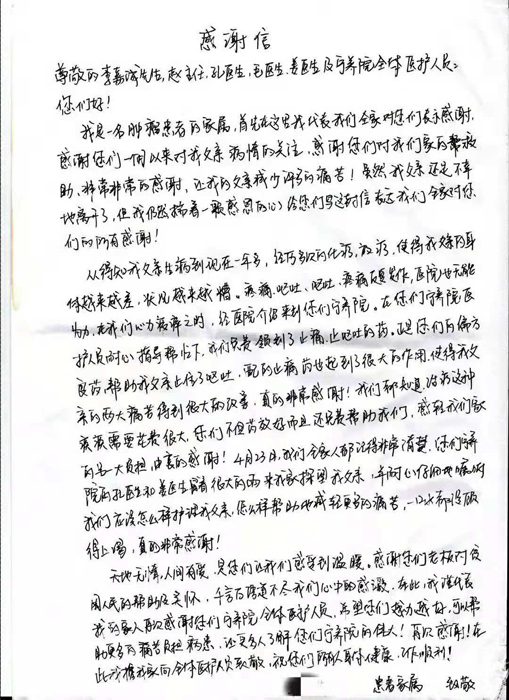 感谢信
尊敬的李嘉诚先生,赵主任,孔医生,毛医生,姜医生及宁养院全体医护人员:
您们好!
我是一名肿瘤患者的家属,首先在这里我代表我们全家对您们表示感谢,
感谢您们一间以来对我父亲病情的关注,感谢您们对我们家的帮救
助,非常非常的感谢,让我的父亲减少许多的病苦!虽然我父亲还是不幸
地离开了,但我仍然揣着一颗感恩的心给您们写这封信表达我们全家对您
们的所有感谢!
从得知我父亲生病到现在一年多,经历多次的化疗,放疗,使得我父亲的身
体越来越差,状况越来越糟。疼痛,呕吐、呕吐、疼痛反复发作,医院也无能
为力,在我们心力疲瘁之时,经医院介绍来到您们宁养院。在您们宁养院医
护人员耐心指导帮忙下,我们免费领到了止痛,止呕吐的药,正是您们的偏方
良药,帮助我父亲止住了呕吐,配的止痛药也起到了很大的作用,使得我父
亲的两大病苦得到很大的改善,真的非常感谢!我们都知道,治病这种
亥亥需要花费很大,您们不但药效好而且还免费帮助我们,减轻我们家
的巨大负担,由衷的感谢!4月23日,我们全家人都记得非常清楚,您们宁养
院的孔医生和姜医生冒着很大的雨来我家探望我父亲,并耐心仔细地嘱咐
我们应该怎么样护理我父亲,怎么样帮助他减轻更多的病苦,一口水都没顾
得上喝,真的非常感谢!
天地无情,人间有爱,是您们让我们感受到温暖。感谢您们老板对贫
困人民的帮助及关怀,千言万语道不尽我们心中的感激。在此,我谨代表
我的家人再次感谢您们宁养院全体医护人员,希望您们越办越好,可以帮
助更多的病者负担病患,还更多人了解您们宁养院的伟大!再次感谢!在
此我携我家向全体医护人员致敬,祝您们所有人身体健康,工作顺利!
患者家属 敬